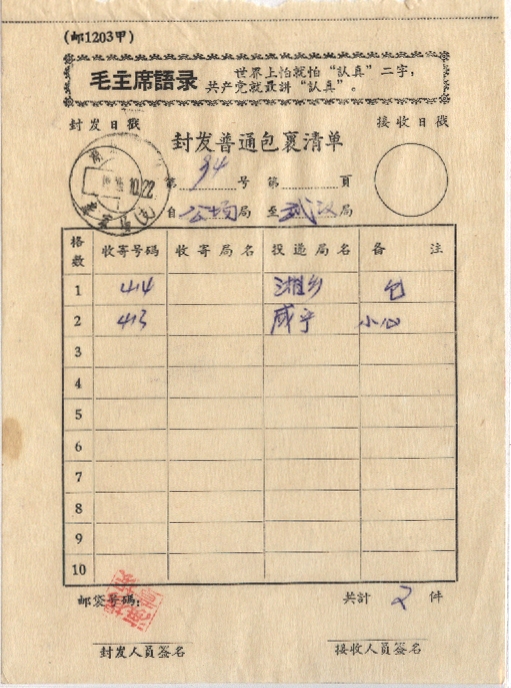 (邮1203甲)
毛主席語录 世界上怕就怕“認真”二字，
共产党就最讲“認真”。
封发日戳 接收日戳
封发普通包裹清单
10.22
第 94 号 第 頁
自 公场 局 至 武汉 局
格数 收寄号码 收寄局名 投递局名 备注
1 414 湘乡 包
2 413 咸宁 小包
3
4
5
6
7
8
9
10
邮袋号碼： 共計 2 件
封发人员签名 接收人员签名